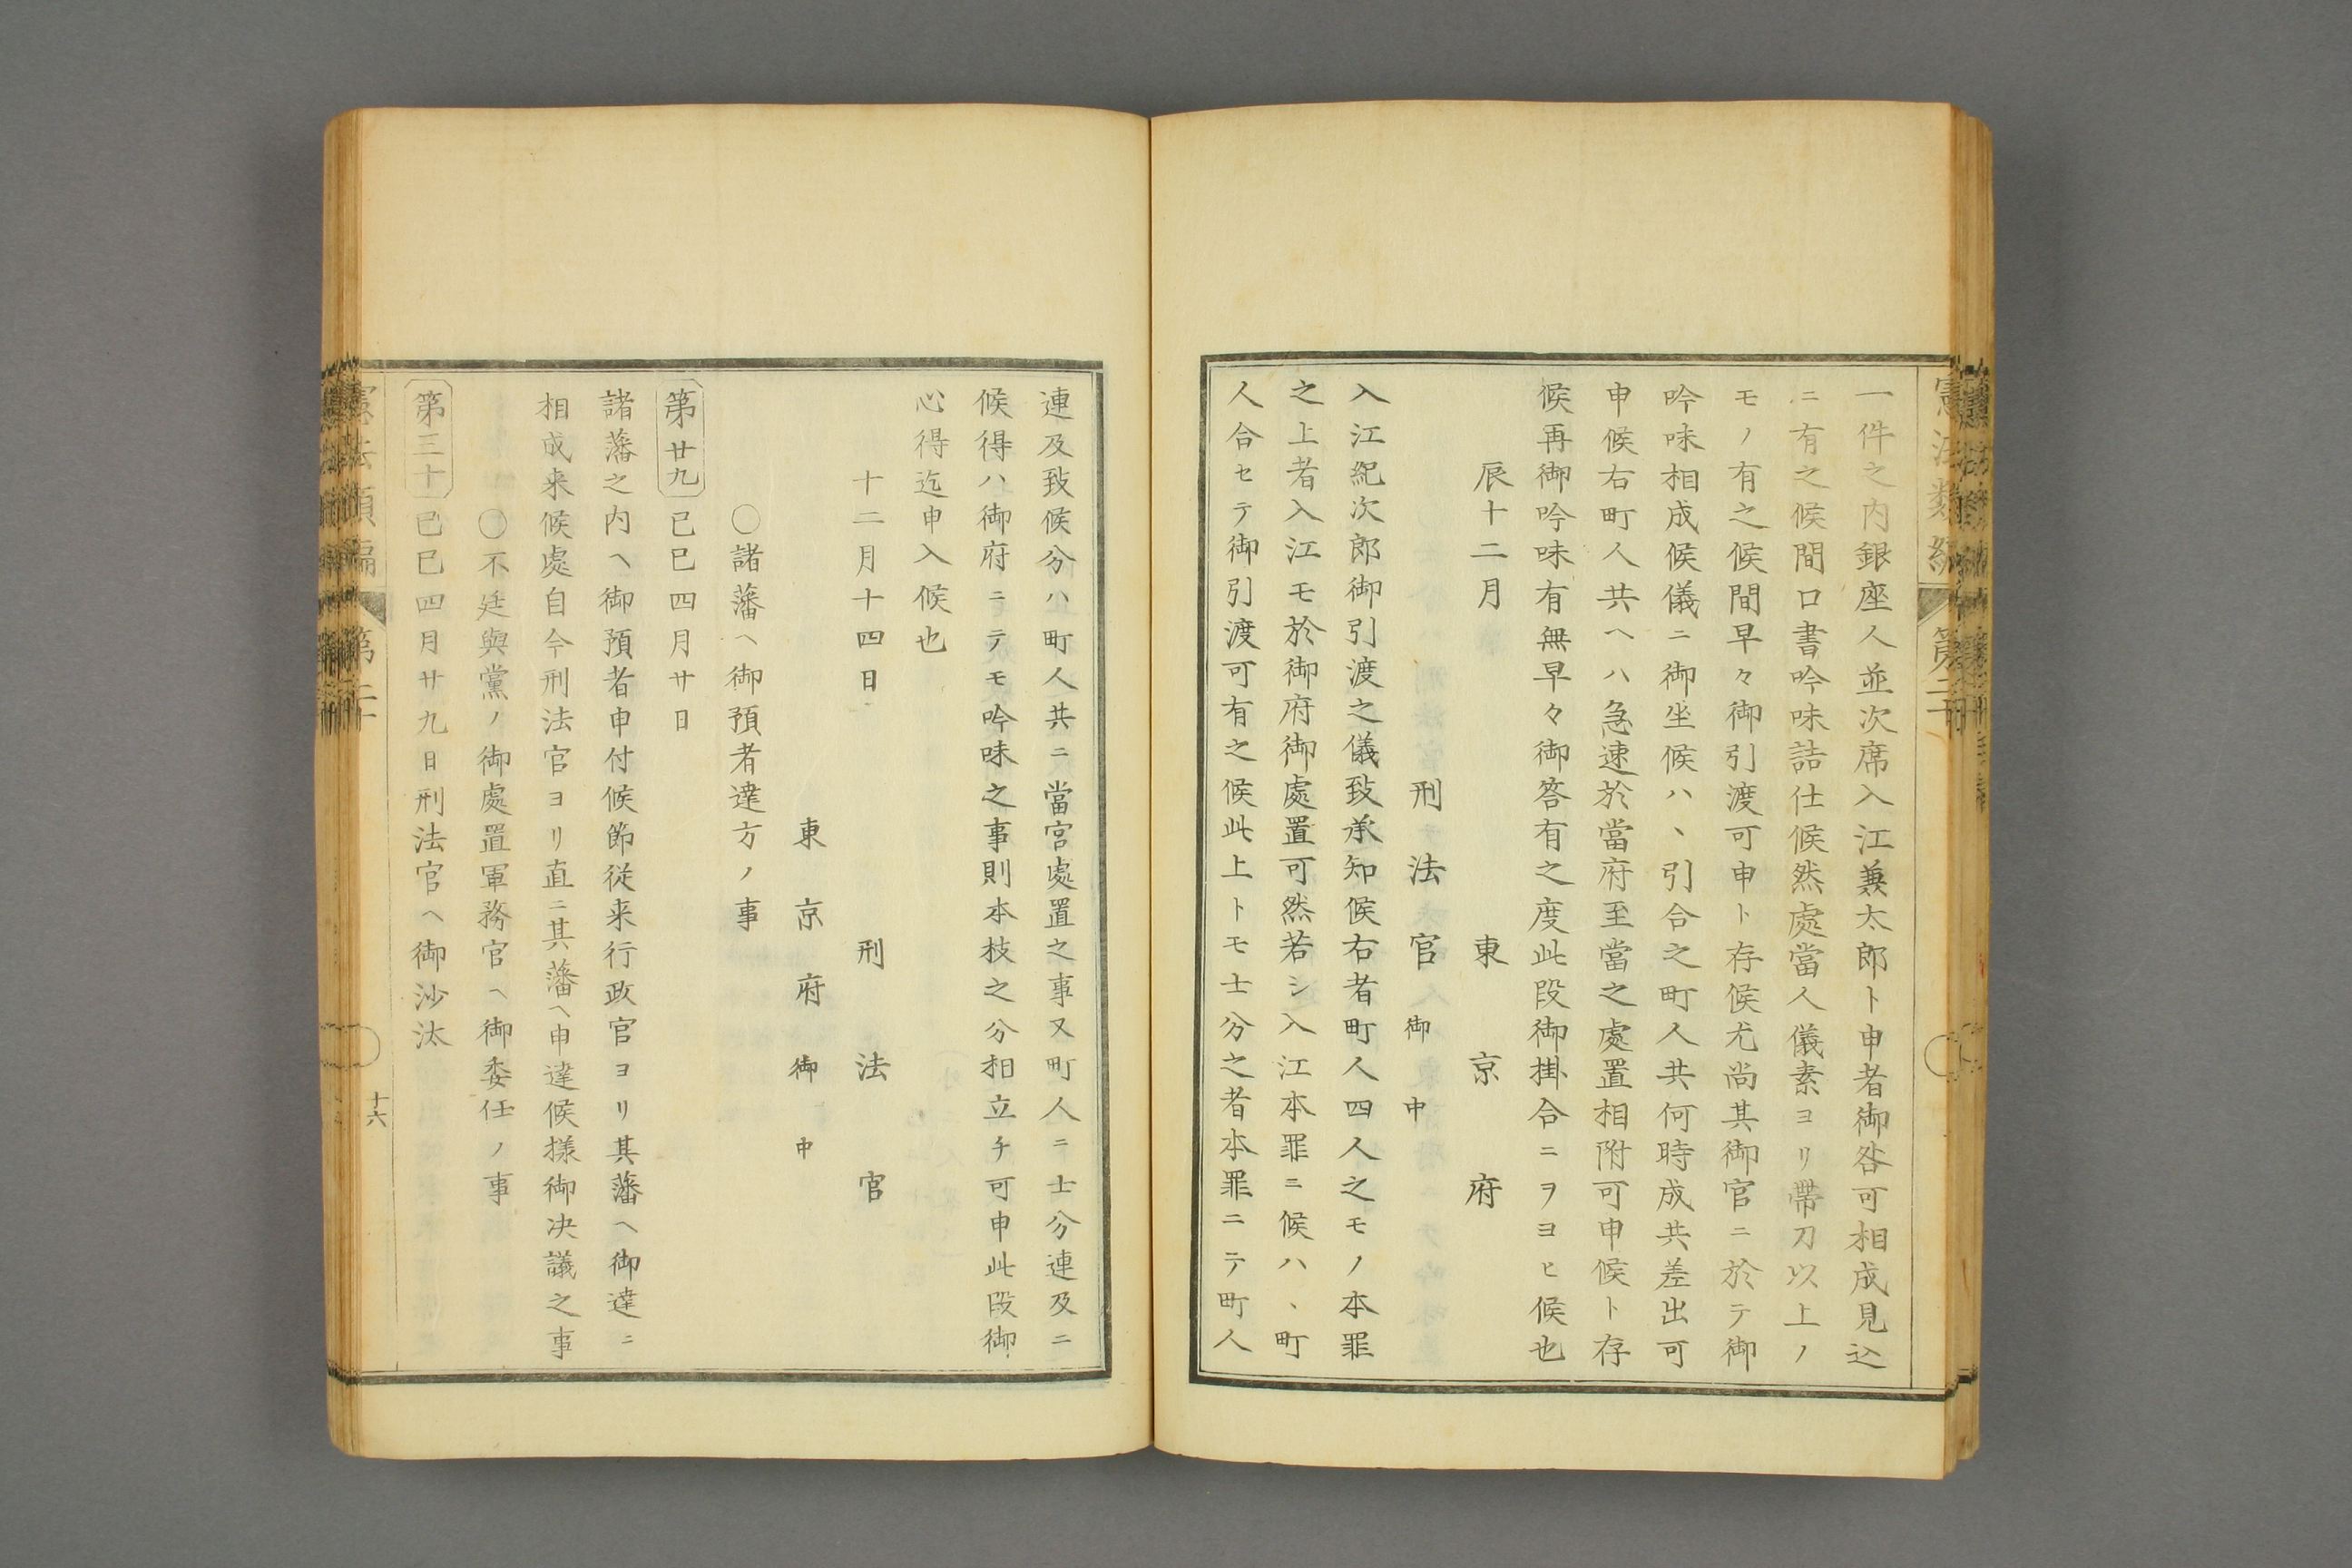 一件之内銀座人並次席入江兼太郎ト申者御咎可相成見込
ニ有之候間口書吟味詰仕候然處當人儀素ヨリ帶刀以上ノ
モノ有之候間早々御引渡可申ト存候尤尚其御官ニ於テ御
吟味相成候儀ニ御坐候ハヽ引合之町人共何時成共差出可
申候右町人共ヘハ急速於當府至當之處置相附可申候ト存
候再御吟味有無早々御答有之度此段御掛合ニヲヨヒ候也
辰十二月 東京府
刑法官御中
入江紀次郎御引渡之儀致承知候右者町人四人之モノ本罪
之上者入江モ於御府御處置可然若シ入江本罪ニ候ハヽ町
人合セテ御引渡可有之候此上トモ士分之者本罪ニテ町人
連及致候分ハ町人共ニ當官處置之事又町人ニ士分連及ニ
候得ハ御府ニテモ吟味之事則本枝之分相立チ可申此段御
心得迄申入候也
十二月十四日 刑法官
東京府御中
〇諸藩ヘ御預者達方ノ事
第廿九 己巳四月廿日
諸藩之内ヘ御預者申付候節従来行政官ヨリ其藩ヘ御達ニ
相成来候處自今刑法官ヨリ直ニ其藩ヘ申達候様御決議之事
〇不廷與黨ノ御處置軍務官ヘ御委任ノ事
第三十 己巳四月廿九日刑法官ヘ御沙汰
憲法類編 第二十
十六